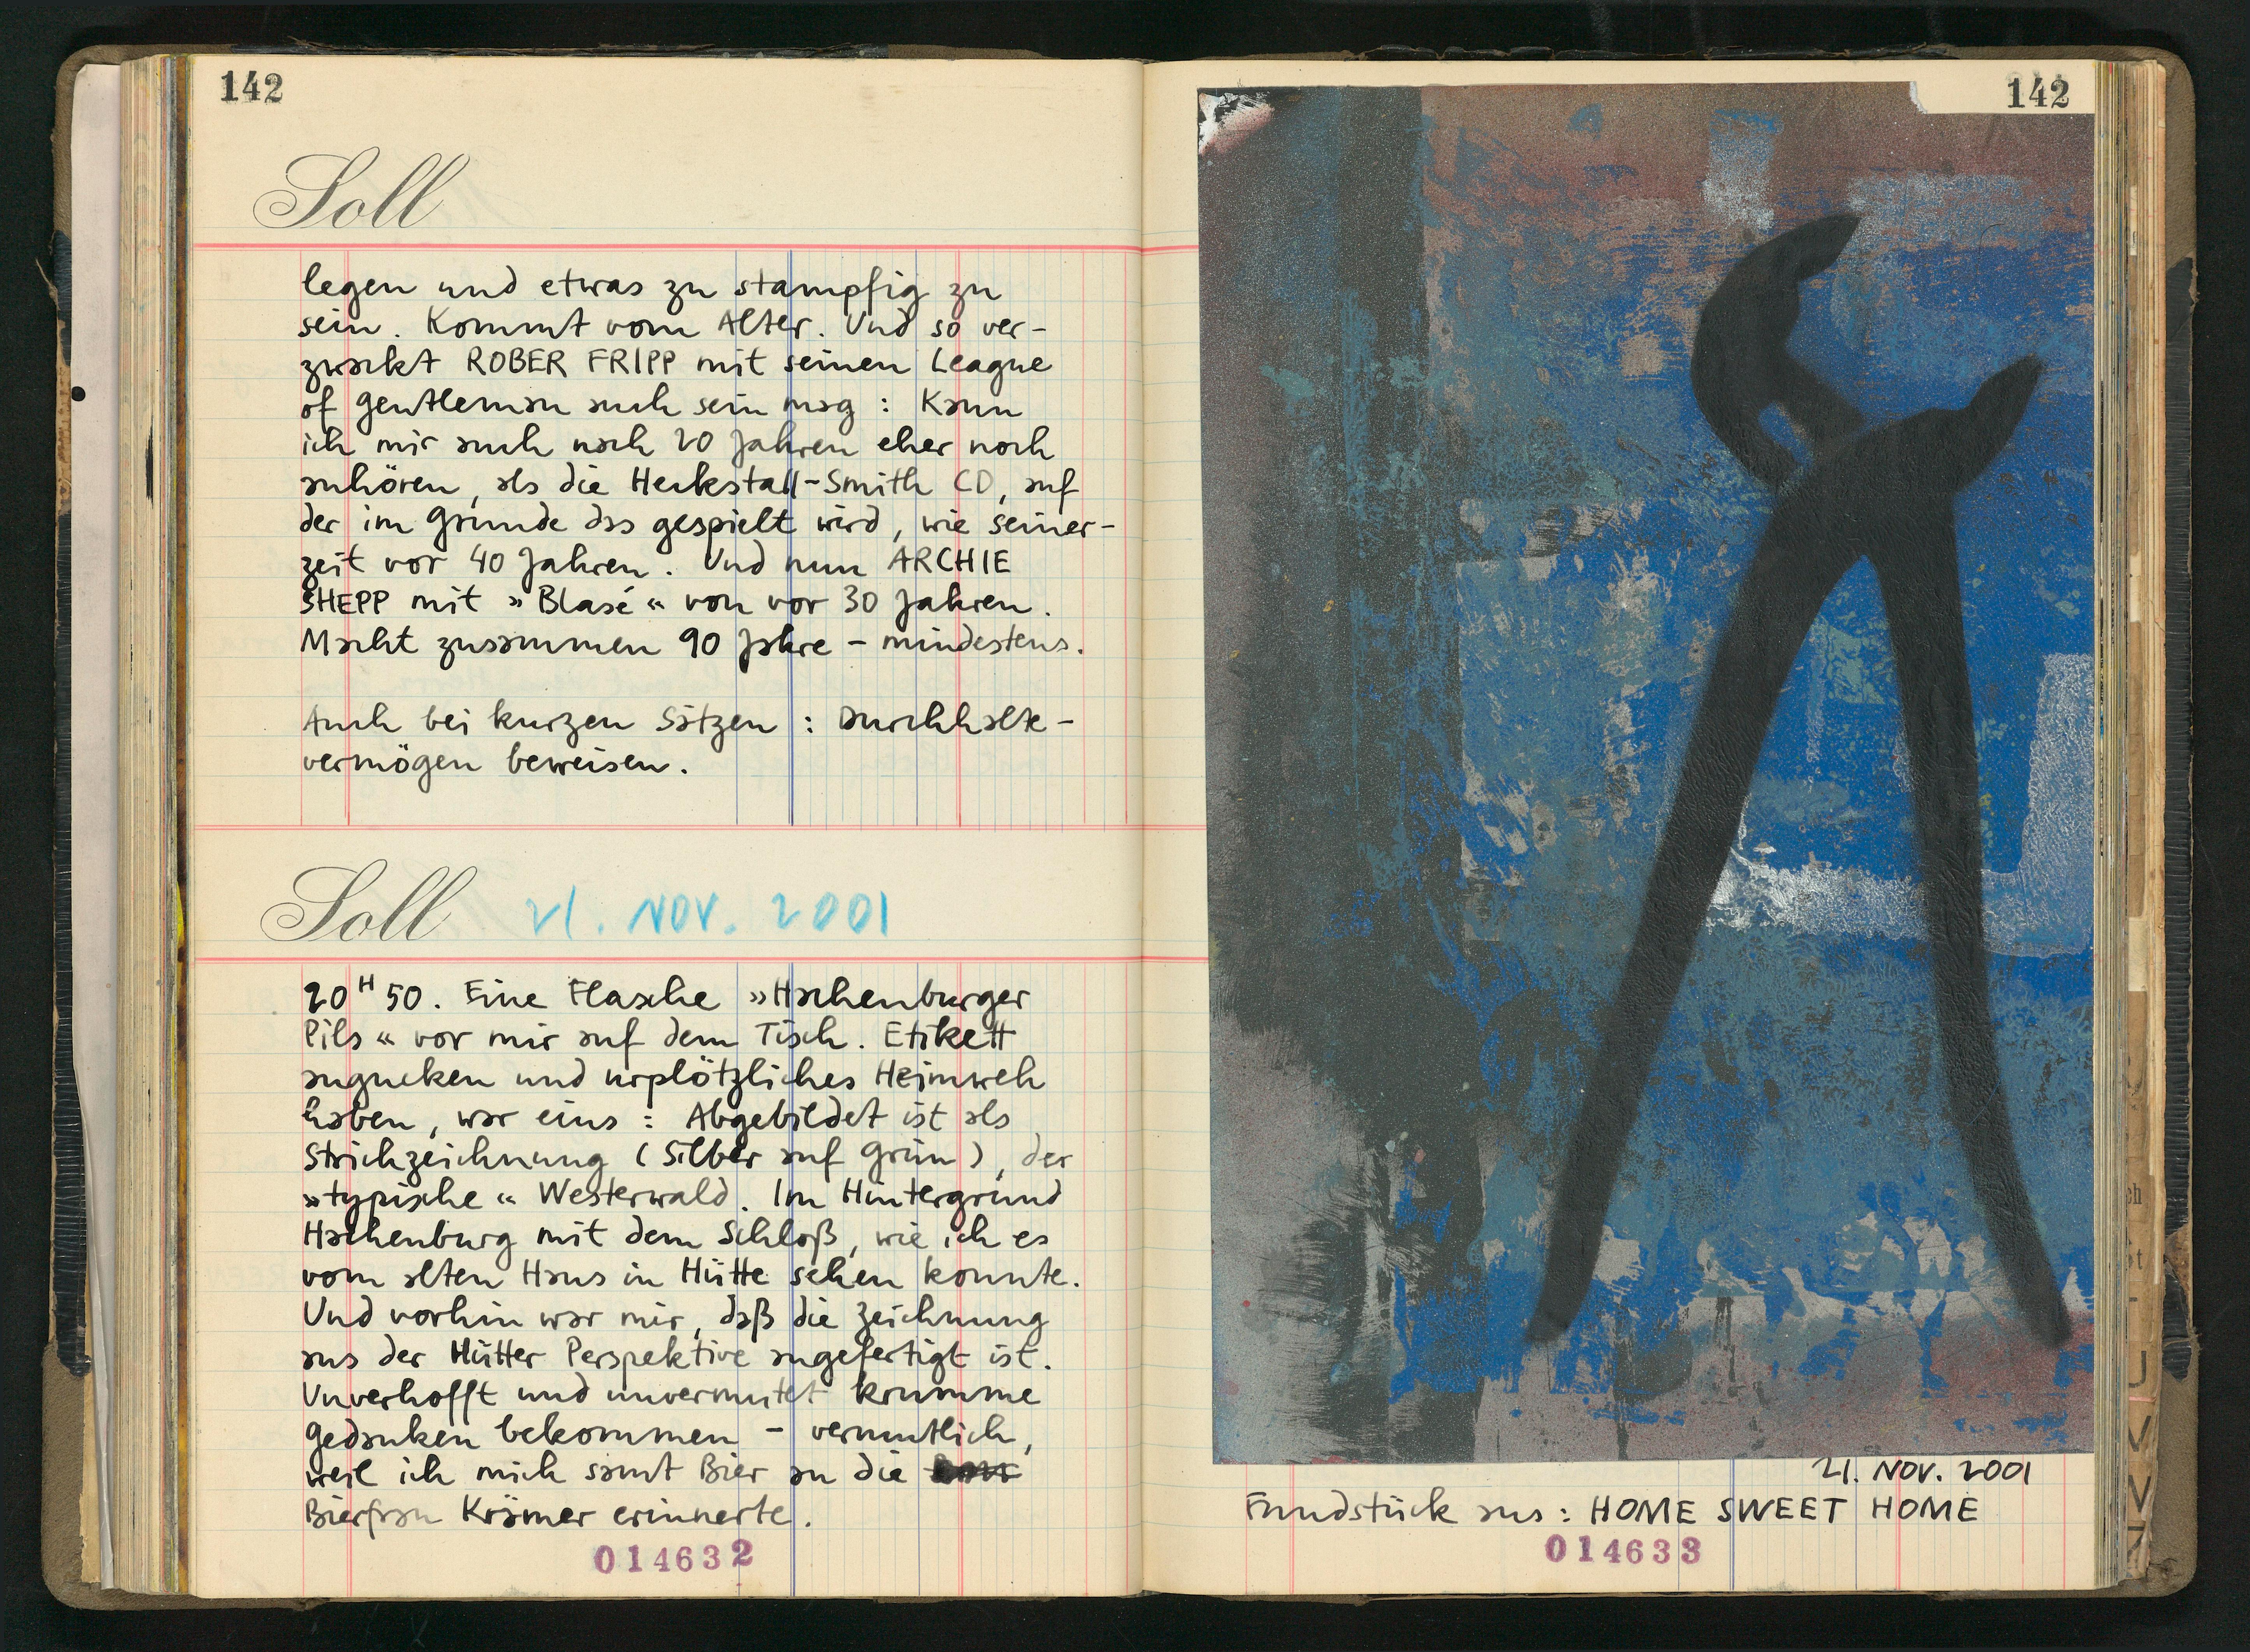 142
Soll
legen und etwas zu stampfig zu
sein. Kommt vom Alter. Und so ver-
zwackt ROBER FRIPP mit seinen League
of gentleman auch sein mag : Kann
ich mir auch nach 20 Jahren eher noch
anhören, als die Heckstall-Smith CD, auf
der im Grunde das gespielt wird, wie seiner-
zeit vor 40 Jahren. Und nun ARCHIE
SHEPP mit »Blasé« von vor 30 Jahren.
Macht zusammen 90 Jahre – mindestens.
Auch bei kurzen Sätzen : Durchhalte-
vermögen beweisen.
Soll 21. NOV. 2001
20H50. Eine Flasche »Hachenburger
Pils« vor mir auf dem Tisch. Etikett
angucken und urplötzliches Heimweh
haben, war eins : Abgebildet ist als
Strichzeichnung (Silber auf Grün), der
»typische« Westerwald. Im Hintergrund
Hachenburg mit dem Schloß, wie ich es
vom alten Haus in Hütte sehen konnte.
Und vorhin war mir, daß die Zeichnung
aus der Hütter Perspektive angefertigt ist.
Unverhofft und unvermutet krumme
Gedanken bekommen – vermutlich,
weil ich mich samt Bier an die
Bierfrau Krämer erinnerte.
014632
142
21. NOV. 2001
Fundstück aus : HOME SWEET HOME
014633
U
V
W
Z